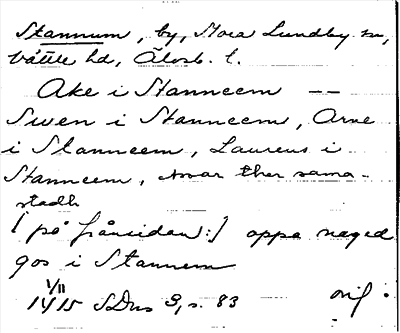 Stannum, by, Stora Lundby sn,
Vättle hd, Älvsb. l.
Ake i Stanneem --
Swen i Stanneem, Arne
i Stanneem, Laurens i
Stanneem, swar ther sama-
stadh
[på frånsidan:] oppa naged
gos i Stannem
1/11
1415 SDns 3, s. 83 orig.